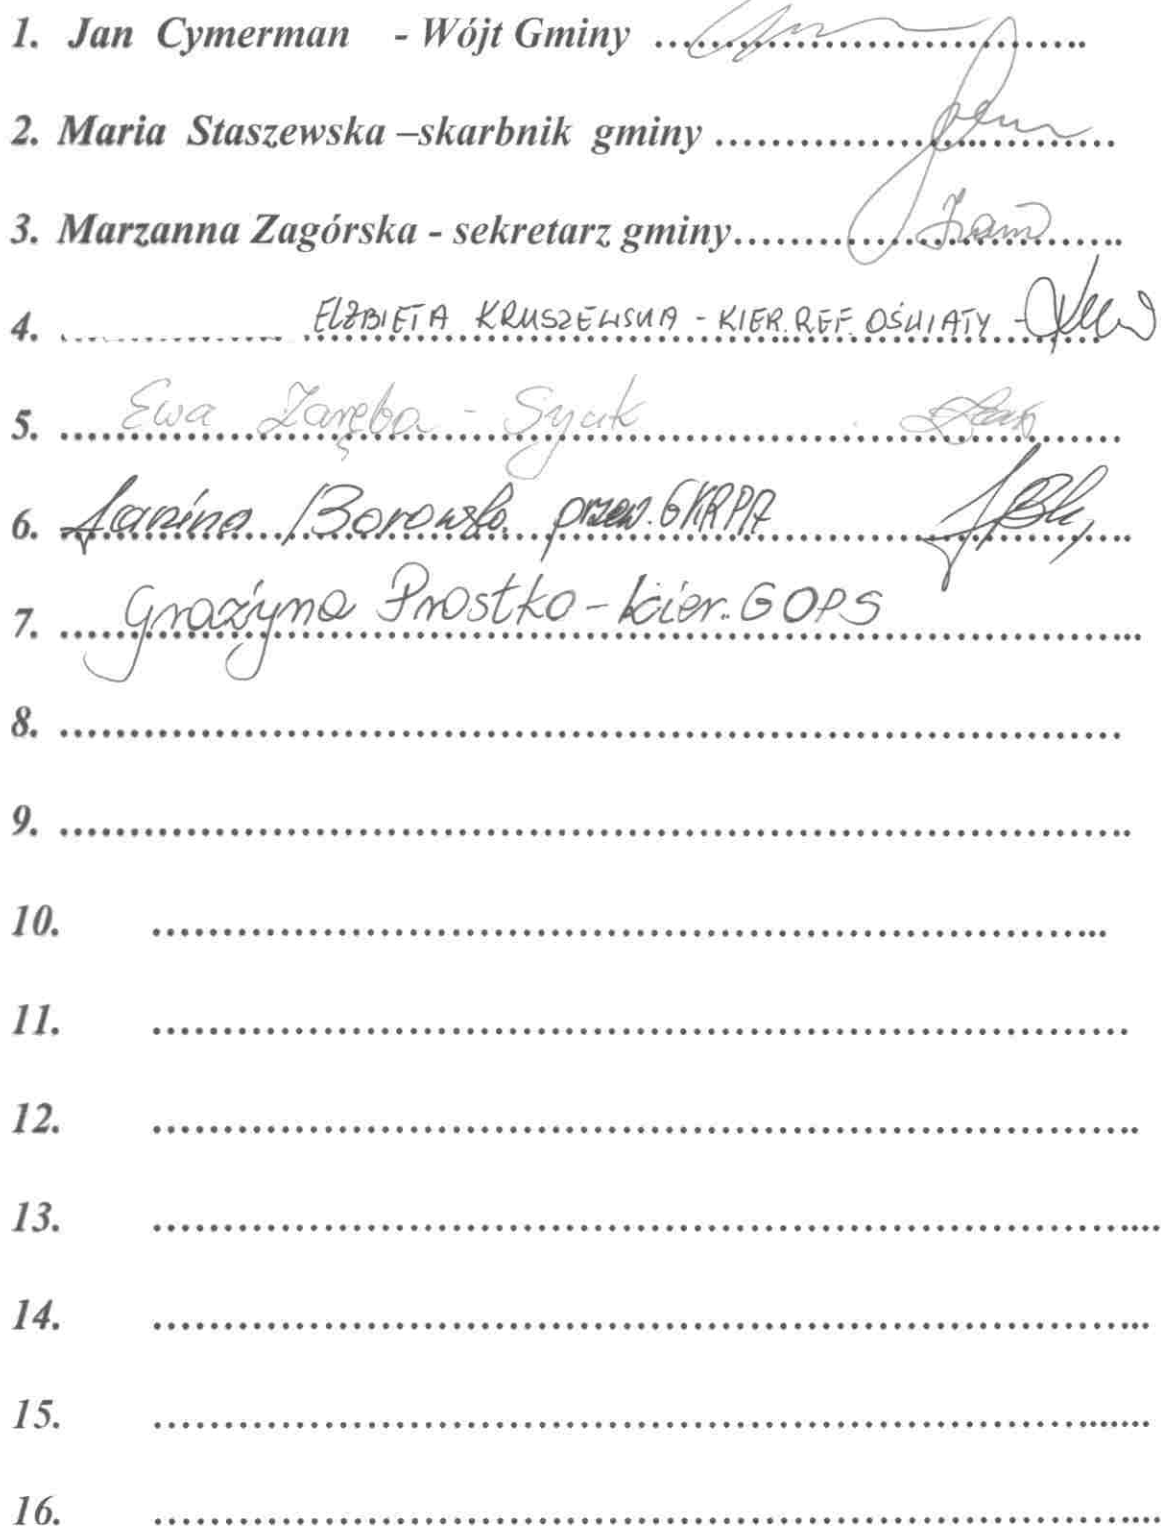 1. Jan Cymerman - Wójt Gminy ........................................
2. Maria Staszewska –skarbnik gminy ........................................
3. Marzanna Zagórska - sekretarz gminy........................................
4. ................ ELŻBIETA KRUSZEWSKA - KIER. REF. OŚWIATY -
5. Ewa Zaręba - Syuk
6. Janina Borowska przew. GKRPA
7. Grażyna Prostko - kier. GOPS
8. ................................................................................
9. ................................................................................
10. ................................................................................
11. ................................................................................
12. ................................................................................
13. ................................................................................
14. ................................................................................
15. ................................................................................
16. ................................................................................